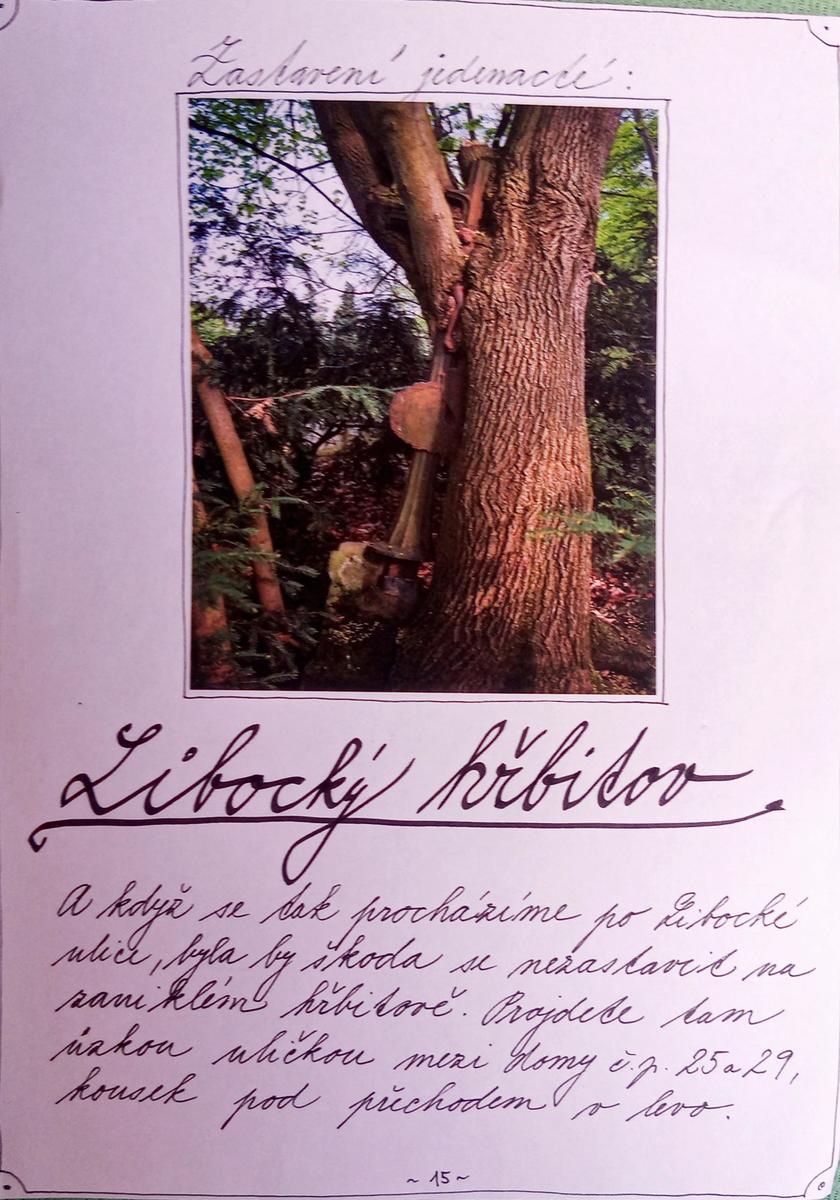 Zastavení jedenácté:
Libocký hřbitov
A když se tak procházíme po Libocké
ulici, byla by škoda se nezastavit na
zaniklém hřbitově. Projdete tam
úzkou uličkou mezi domy č.p. 25 a 29,
kousek pod přechodem v levo.
~ 15 ~